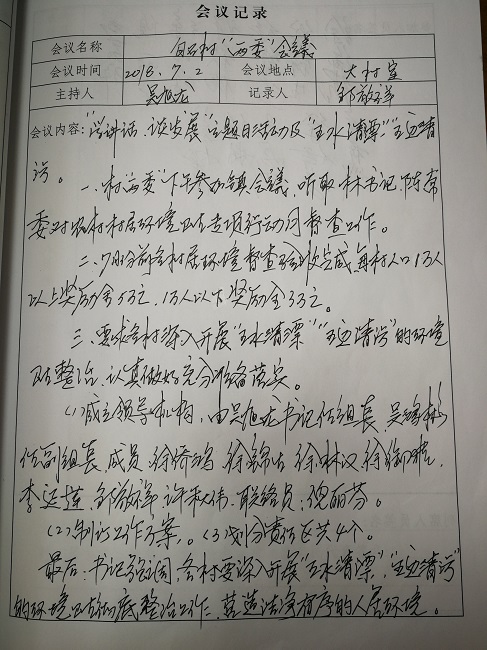 会议记录
会议名称 白石村“两委”会議
会议时间 2018.7.2 会议地点 大村室
主持人 吴旭龙 记录人 邹敏祥
会议内容:“学讲话、谈发展”主题日活动及“五水清漂”“五边清
污。
一、村两委下午参加镇会議,听取林书记、陈
委对农村村居环境卫生专项行动问督查工作。
二、7月份前全村居环境督查验收完成,每村人口1万人
以上奖励金5万元,1万人以下奖励金3万元。
三、要求各村深入开展“五水清漂”“五边清污”的环境
整治,认真做好充分准备落实。
(1)成立领导机构,由吴旭龙书记任组长,吴鸿彬
任副组长,成员徐
李运莲、邹敏祥、许秋伟、联络员:倪丽芬。
(2)制订工作方案。(3)划分责任区共4个。
最后,书记强调,各村要深入开展“五水清漂”,“五边清污”
的环境卫生彻底整治工作,营造洁净有序的人居环境。